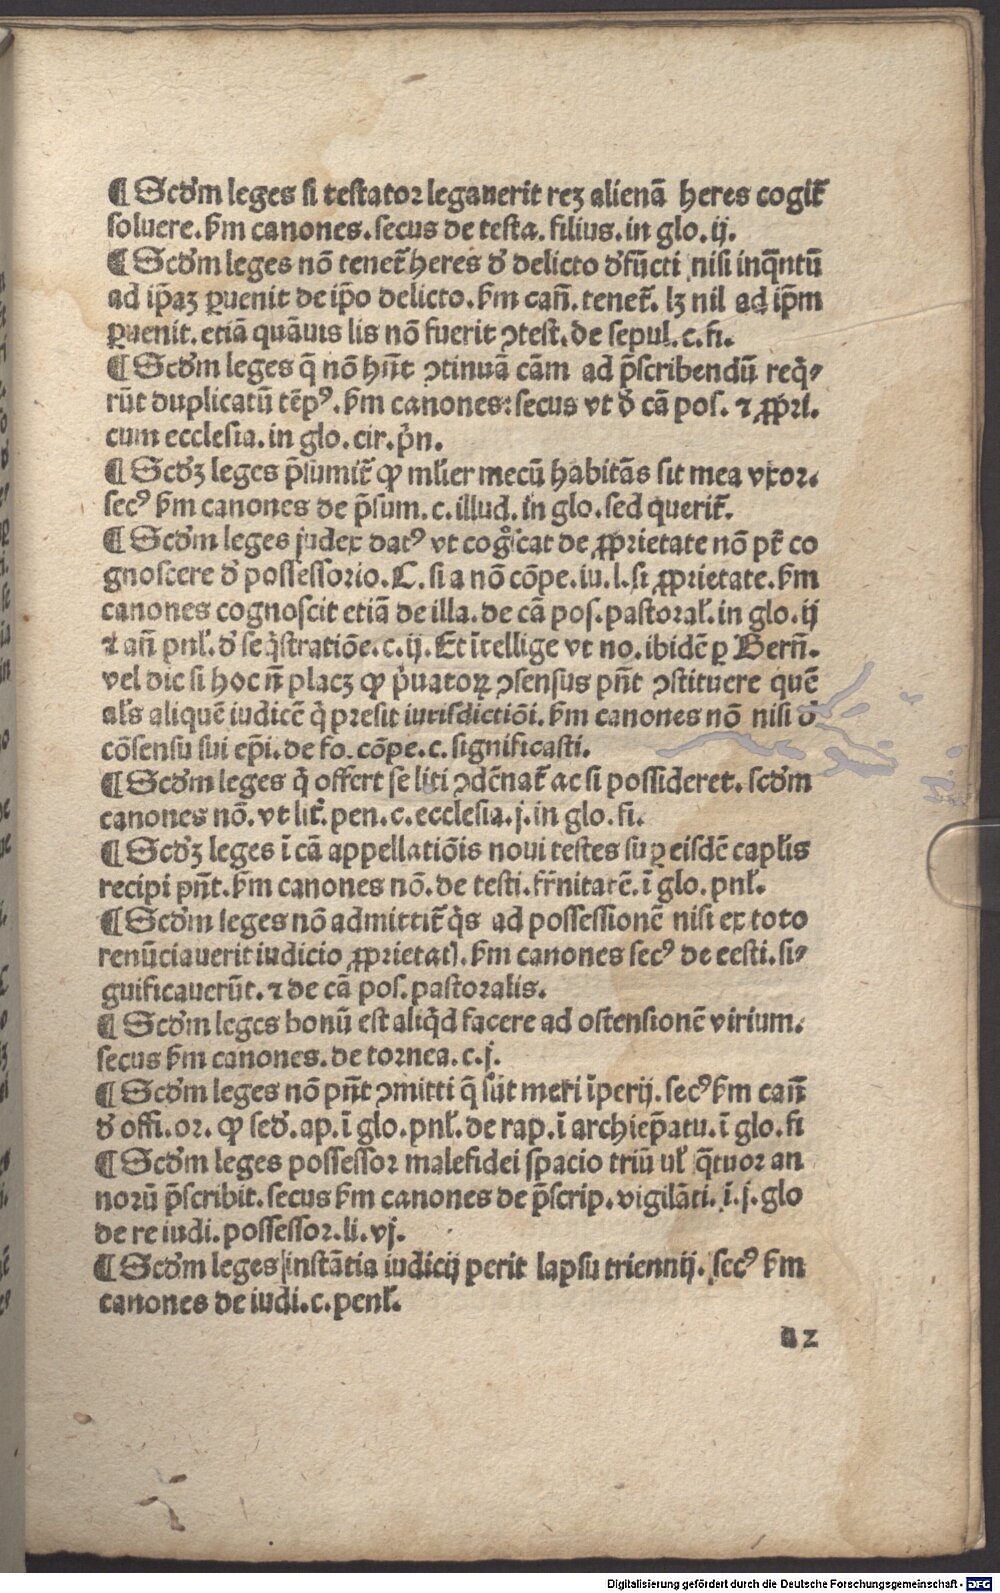 ¶ Scđm leges si testator legauerit reꝫ alienā heres cogit᷑
soluere. ẜm canones. secus de testa. filius. in glo. ij.
¶ Scđm leges nō tenet᷑ heres đ delicto đfūcti nisi inq̄ntū
ad ip̄aꝫ ꝑuenit de ip̄o delicto. ẜm can̄. tenet᷑. lꝫ nil ad ip̄m
ꝑuenit. etiā quāuis lis nō fuerit ꝯtest. de sepul. c. fi.
¶ Scđm leges q̄ nō hn̄t ꝯtinuā cām ad p̄scribendū req̇⸗
rūt duplicatū tēpꝰ. ẜm canones: secus vt đ cā pos. ⁊ ꝓpri.
cum ecclesia. in glo. cir. prin.
¶ Scđꝫ leges p̄sumit᷑ ꝙ ml̓ier mecū habitās sit mea vxor.
secꝰ ẜm canones de p̄sum. c. illud. in glo. sed querit᷑.
¶ Scđm leges judex datꝰ vt cog̊scat de ꝓprietate nō pt̄ co
gnoscere đ possessorio. C. si a nō cōpe. iu. l. si ꝓprietate. ẜm
canones cognoscit etiā de illa. de cā pos. pastoral̓. in glo. ij
⁊ an̄ pnl̓. đ seq̄stratiōe. c. ij. Et ītellige vt no. ibidē ꝑ Bern̄.
vel dic si hoc n̄ placꝫ ꝙ p̓uatoꝝ ꝯsensus pn̄t ꝯstituere quē
al̓s aliquē iudicē q̇ presit iurisdictiōi. ẜm canones nō nisi đ
cōsensu sui ep̄i. de fo. cōpe. c. significasti.
¶ Scđm leges q̇ offert se liti ꝯdēnat᷑ ac si possideret. scđm
canones nō. vt lit᷑. pen. c. ecclesia. j. in glo. fi.
¶ Scđꝫ leges ī cā appellatiōis noui testes suꝑ eisdē capl̓is
recipi pn̄t. ẜm canones nō. de testi. fr̄nitatē. ī glo. pnl̓.
¶ Scđm leges nō admittit᷑ q̇s ad possessionē nisi ex toto
renūciauerit iudicio ꝓprietatꝭ. ẜm canones secꝰ de eesti. si⸗
guificauerūt. ⁊ de cā pos. pastoralis.
¶ Scđm leges bonū est aliq̇d facere ad ostensionē virium.
secus ẜm canones. de tornea. c. j.
¶ Scđm leges nō pn̄t ꝯmitti q̄ sūt meri īperij. secꝰ ẜm can̄
đ offi. or. ꝙ seđ. ap. ī glo. pnl̓. de rap. ī archiep̄atu. ī glo. fi
¶ Scđm leges possessor malefidei spacio triū ul̓ q̄tuor an
norū p̄scribit. secus ẜm canones de p̄scrip. vigilāti. ī. j. glo
de re iudi. possessor. li. vj.
¶ Scđm leges instātia iudicij perit lapsu triennij. secꝰ ẜm
canones de iudi. c. penl̓.
a2
Digitalisierung gefördert durch die Deutsche Forschungsgemeinschaft - DFG